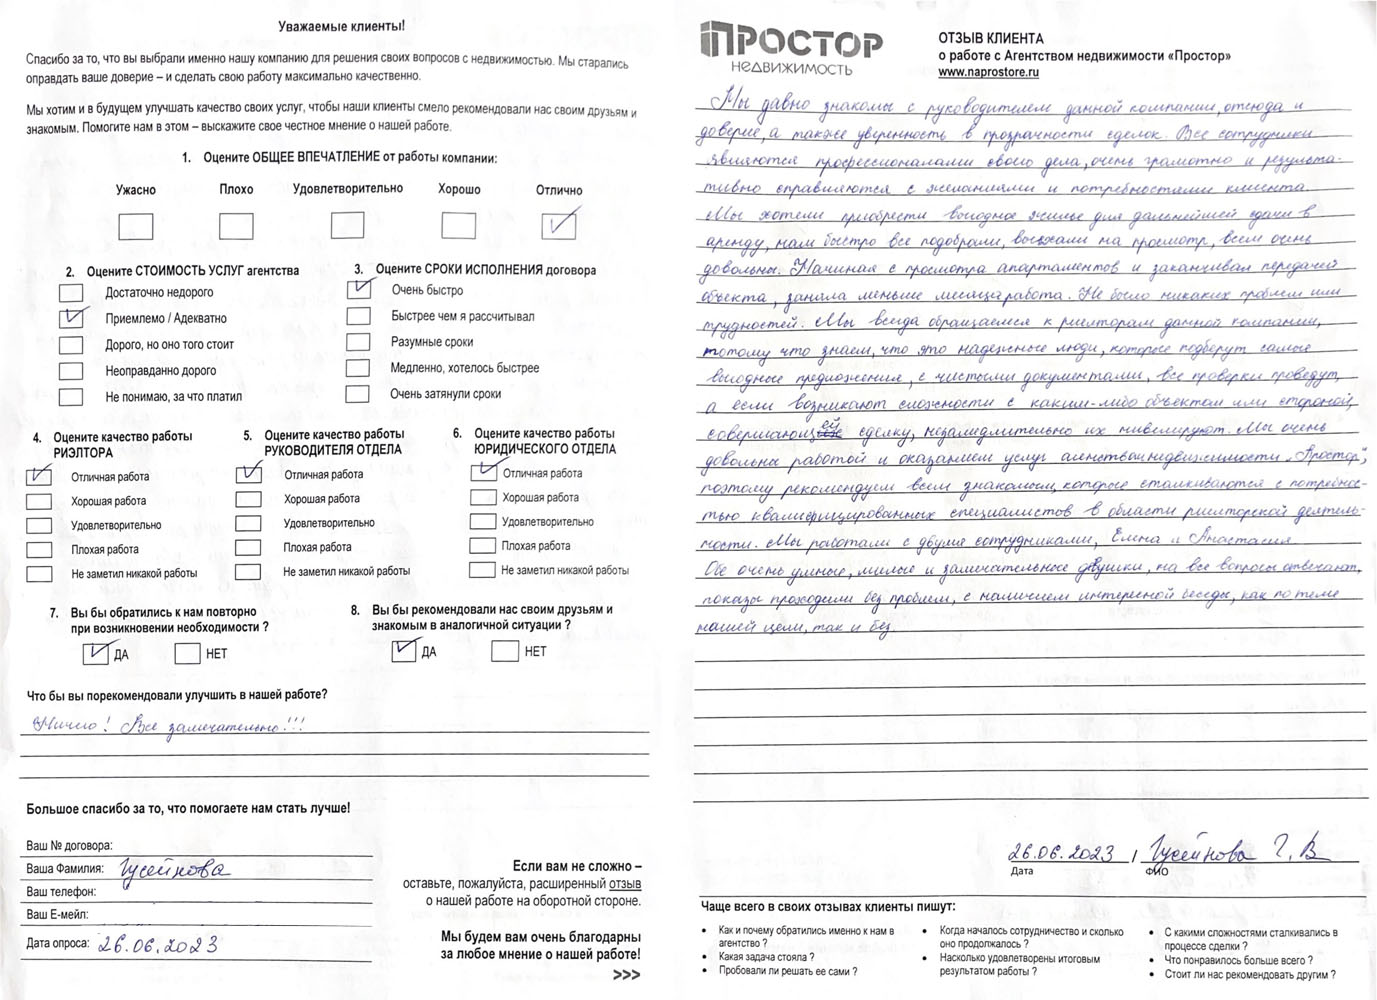 Уважаемые клиенты!
Спасибо за то, что вы выбрали именно нашу компанию для решения своих вопросов с недвижимостью. Мы старались
оправдать ваше доверие – и сделать свою работу максимально качественно.
Мы хотим и в будущем улучшать качество своих услуг, чтобы наши клиенты смело рекомендовали нас своим друзьям и
знакомым. Помогите нам в этом – выскажите свое честное мнение о нашей работе.
1. Оцените ОБЩЕЕ ВПЕЧАТЛЕНИЕ от работы компании:
Ужасно Плохо Удовлетворительно Хорошо Отлично
2. Оцените СТОИМОСТЬ УСЛУГ агентства
Достаточно недорого
Приемлемо / Адекватно
Дорого, но оно того стоит
Неоправданно дорого
Не понимаю, за что платил
3. Оцените СРОКИ ИСПОЛНЕНИЯ договора
Очень быстро
Быстрее чем я рассчитывал
Разумные сроки
Медленно, хотелось быстрее
Очень затянули сроки
4. Оцените качество работы
РИЭЛТОРА
Отличная работа
Хорошая работа
Удовлетворительно
Плохая работа
Не заметил никакой работы
5. Оцените качество работы
РУКОВОДИТЕЛЯ ОТДЕЛА
Отличная работа
Хорошая работа
Удовлетворительно
Плохая работа
Не заметил никакой работы
6. Оцените качество работы
ЮРИДИЧЕСКОГО ОТДЕЛА
Отличная работа
Хорошая работа
Удовлетворительно
Плохая работа
Не заметил никакой работы
7. Вы бы обратились к нам повторно
при возникновении необходимости ?
ДА НЕТ
8. Вы бы рекомендовали нас своим друзьям и
знакомым в аналогичной ситуации ?
ДА НЕТ
Что бы вы порекомендовали улучшить в нашей работе?
Ничего! Все замечательно!!!
Большое спасибо за то, что помогаете нам стать лучше!
Ваш № договора:
Ваша Фамилия: Гусейнова
Ваш телефон:
Ваш Е-мейл:
Дата опроса: 26.06.2023
Если вам не сложно –
оставьте, пожалуйста, расширенный отзыв
о нашей работе на оборотной стороне.
Мы будем вам очень благодарны
за любое мнение о нашей работе!
>>>
ПРОСТОР
НЕДВИЖИМОСТЬ
ОТЗЫВ КЛИЕНТА
о работе с Агентством недвижимости «Простор»
www.naprostore.ru
Мы давно знакомы с руководителем данной компании, отсюда и
доверие, а также уверенность в прозрачности сделок. Все сотрудники
являются профессионалами своего дела, очень грамотно и результа-
тивно справляются с желаниями и потребностями клиента.
Мы хотели приобрести выгодное жилье для дальнейшей сдачи в
аренду, нам быстро все подобрали, выехали на просмотр, всем очень
довольны. Начиная с просмотра апартаментов и заканчивая передачей
объекта, заняла меньше месяца работа. Не было никаких проблем или
трудностей. Мы всегда обращаемся к риелторам данной компании,
потому что знаем, что это надежные люди, которые подберут самые
выгодные предложения, с чистыми документами, все проверки проведут,
а если возникают сложности с каким-либо объектом или стороной,
совершающей сделку, незамедлительно их нивелируют. Мы очень
довольны работой и оказанием услуг агенства недвижимости "Простор",
поэтому рекомендуем всем знакомым, которые сталкиваются с потребнос-
тью квалифицированных специалистов в области риелторской деятель-
ности. Мы работали с двумя сотрудниками, Елена и Анастасия.
Обе очень умные, милые и замечательные девушки, на все вопросы отвечают,
показы проходили без проблем, с наличием интересной беседы, как по теме
нашей цели, так и без
26.06.2023 / Гусейнова Г. В
Дата ФИО
Чаще всего в своих отзывах клиенты пишут:
• Как и почему обратились именно к нам в
агентство ?
• Какая задача стояла ?
• Пробовали ли решать ее сами ?
• Когда началось сотрудничество и сколько
оно продолжалось ?
• Насколько удовлетворены итоговым
результатом работы ?
• С какими сложностями сталкивались в
процессе сделки ?
• Что понравилось больше всего ?
• Стоит ли нас рекомендовать другим ?